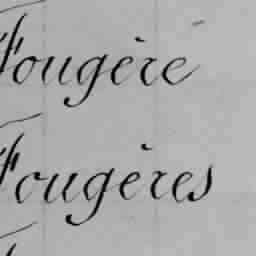 Fougère
Fougères